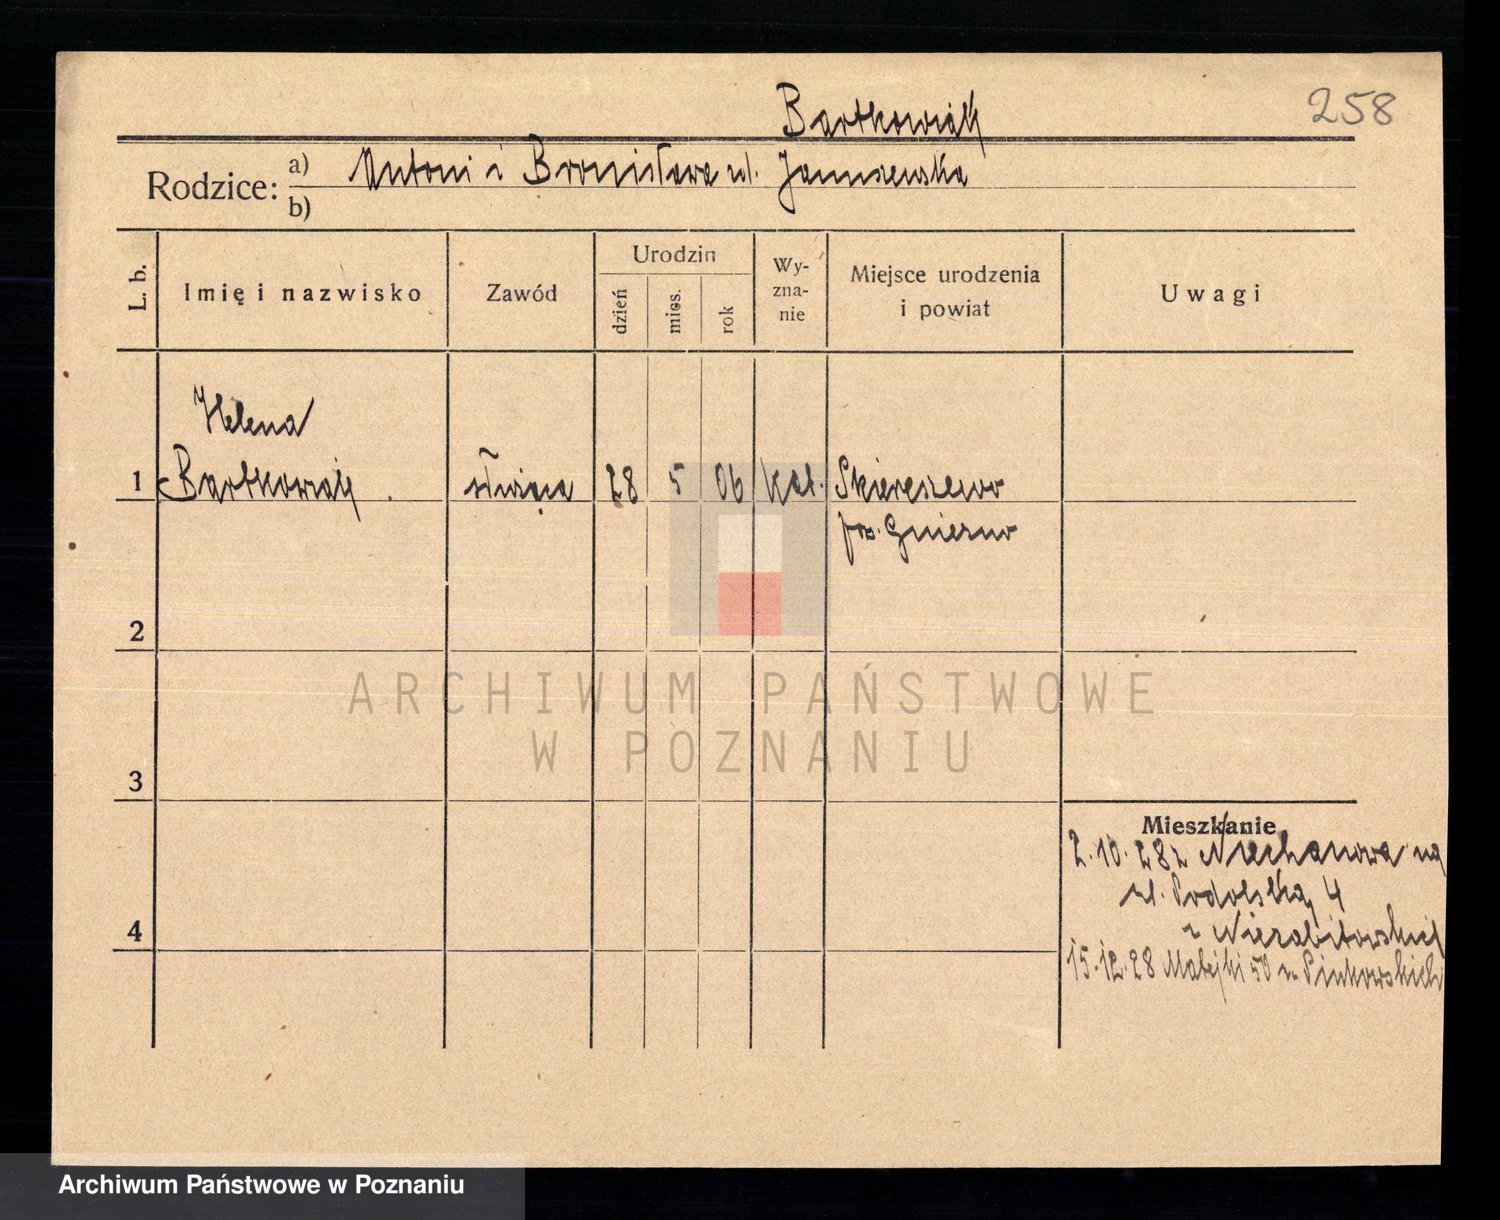 258
Bartkowiak
Rodzice: a) Antoni i Bronisława ur. Januszewska
b)
L. b.
Imię i nazwisko
Zawód
Urodzin
dzień
mies.
rok
Wy-
zna-
nie
Miejsce urodzenia
i powiat
Uwagi
Helena
1 Bartkowiak służąca 28 5 06 kat. Skiereszewo
pow. Gniezno
2
3
4
Mieszkanie
2.10.28 z Niechanowa na
ul. Podolską 4
u Niezabitowskich
15.12.28 Matejki 50 u Pinkowskich
ARCHIWUM PAŃSTWOWE
W POZNANIU
Archiwum Państwowe w Poznaniu